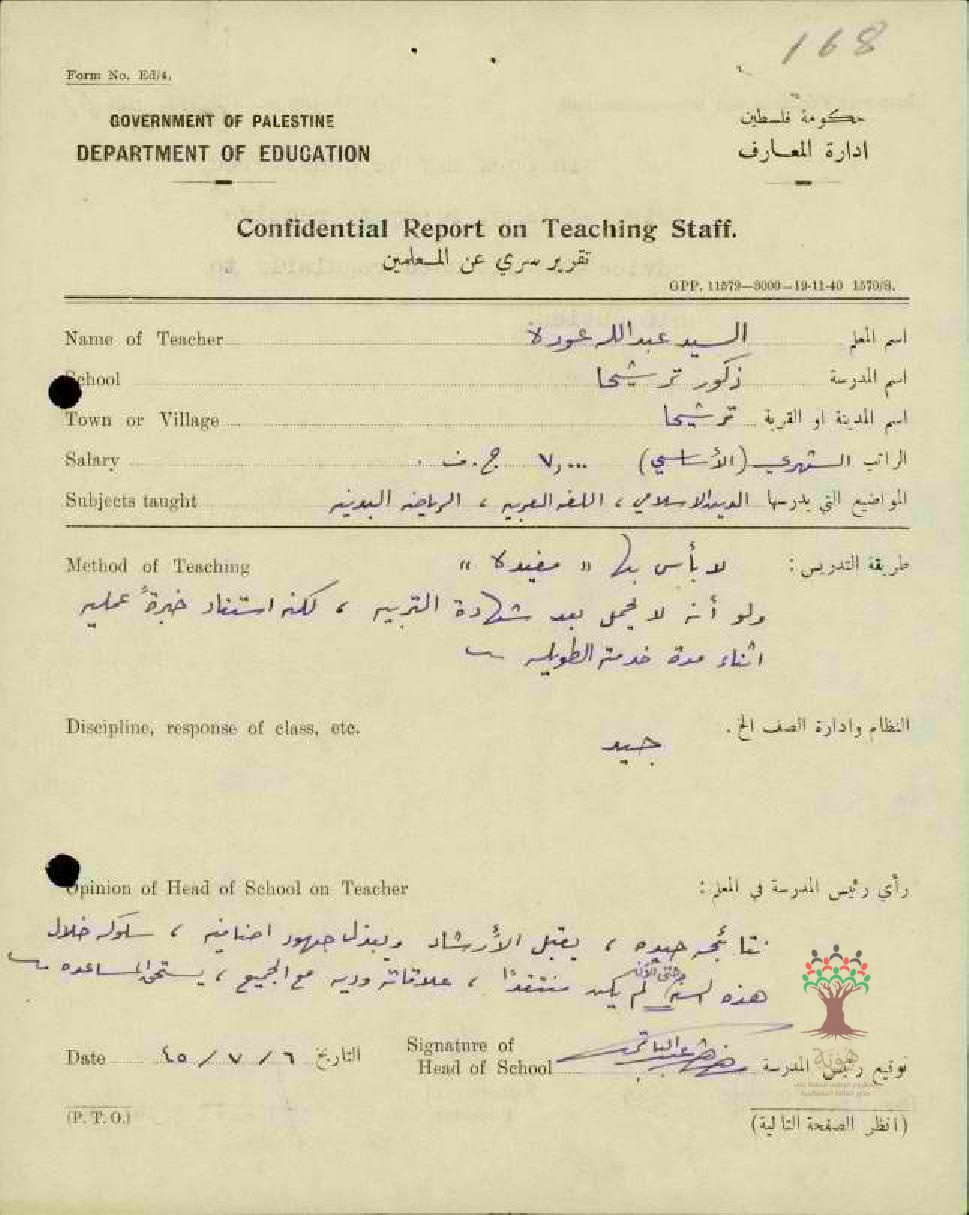 168
Form No. Ed/4.
GOVERNMENT OF PALESTINE
حكومة فلسطين
DEPARTMENT OF EDUCATION
ادارة المعارف
Confidential Report on Teaching Staff.
تقرير سري عن المعلمين
GPP. 11579—3000—19-11-40 1570/S.
Name of Teacher السيد عبدالله عودة اسم المعلم
School ذكور ترشيحا اسم المدرسة
Town or Village ترشيحا اسم المدينة او القرية
Salary الراتب الشهري (الأساسي) ٧,٠٠٠ ج.ف.
Subjects taught المواضيع التي يدرسها الدين الاسلامي ، اللغه العربيه ، الرياضه البدنيه
Method of Teaching طريقة التدريس : لا بأس بها « مفيدة »
ولو أنه لا يحمل بعد شهادة التربيه ، لكنه استفاد خبرةً عمليه
اثناء مدة خدمته الطويله
Discipline, response of class, etc. النظام وادارة الصف الخ .
جيد
Opinion of Head of School on Teacher رأي رئيس المدرسة في المعلم :
نتائجه جيده ، يقبل الأرشاد ويبذل جهود اضافيه ، سلوكه خلال
هذه السنه وحتى الآن لم يكن منتقدًا ، علاقاته وديه مع الجميع ، يستحق المساعده
Date ٦ / ٧ / ٤٥ التاريخ
Signature of
Head of School توقيع رئيس المدرسة
هوية
(P. T. O.)
(انظر الصفحة التالية)